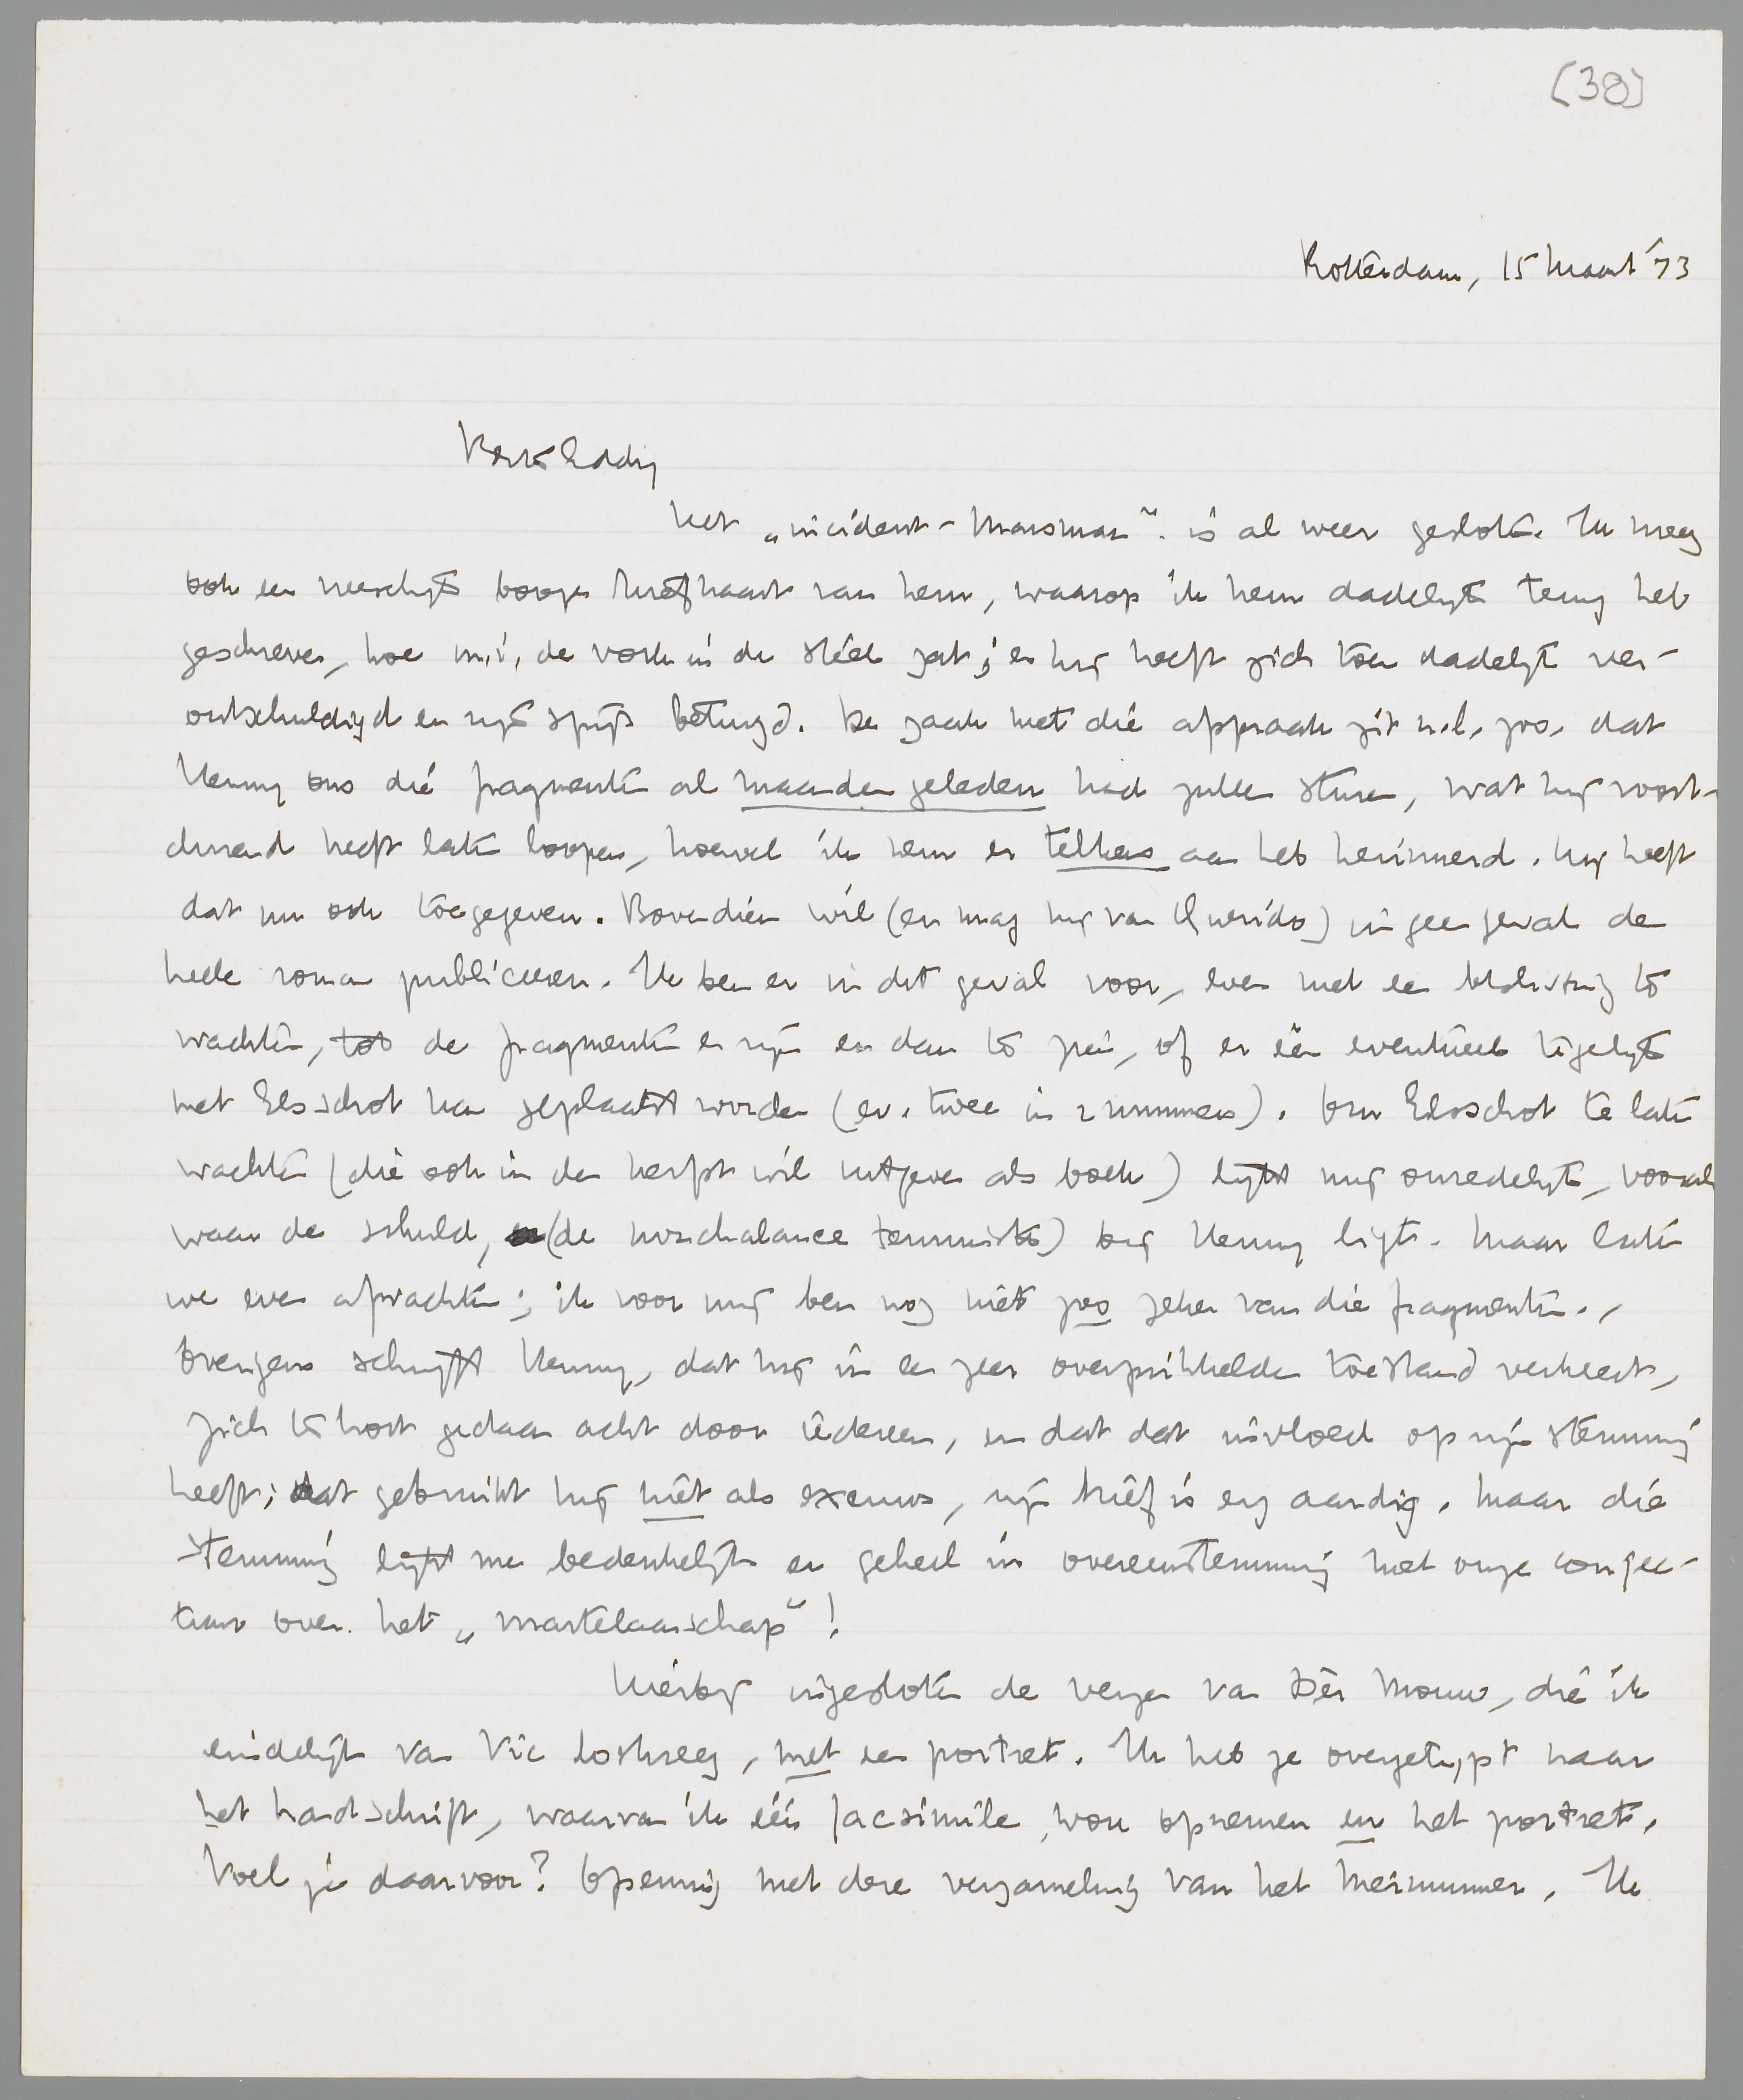 (38)
Rotterdam, 15 Maart '33
Beste Eddy
Het „incident-Marsman” is al weer gesloten. Ik kreeg
ook een nieschyts booze briefkaart van hem, waarop ik hem dadelijk terug heb
geschreven, hoe m.i. de vork in de steel zat; en hij heeft zich toen dadelijk ver-
ontschuldigd en zijn spijt betuigd. De zaak met die afspraak zit n.l. zoo, dat
Henny ons die fragmenten al maanden geleden had zullen sturen, wat hij voort-
durend heeft laten loopen, hoewel ik hem er telkens aan heb herinnerd. Hij heeft
dat nu ook toegegeven. Bovendien wil (en mag hij van Querido) in geen geval de
heele roman publiceeren. Ik ben er in dit geval voor, even met een beslissing te
wachten, tot de fragmenten er zijn en dan te zien, of er één eventueel tegelijk
met Elsschot kan geplaatst worden (ev. twee in 2 nummers). Om Elsschot te laten
wachten (die ook in den herfst wil uitgeven als boek) lijkt mij onredelijk, vooral
waar de schuld, (de nonchalance tenminste) bij Henny ligt. Maar laten
we even afwachten; ik voor mij ben nog niet zoo zeker van die fragmenten.,
Overigens schrijft Henny, dat hij in een zeer overprikkelden toestand verkeert,
zich te kort gedaan acht door iedereen, en dat dat invloed op zijn stemming
heeft; dat gebruikt hij niet als excuus, zijn brief is erg aardig. Maar die
stemming lijkt me bedenkelijk en geheel in overeenstemming met onze conjec-
tuur over het „martelaarschap”!
Hierbij ingesloten de verzen van Dèr Mouw, die ik
eindelijk van Vic loskreeg, met een portret. Ik heb ze overgetypt naar
het handschrift, waarvan ik één facsimile wou opnemen en het portret.
Voel je daarvoor? Opening met deze verzameling van het Meinummer. Ik